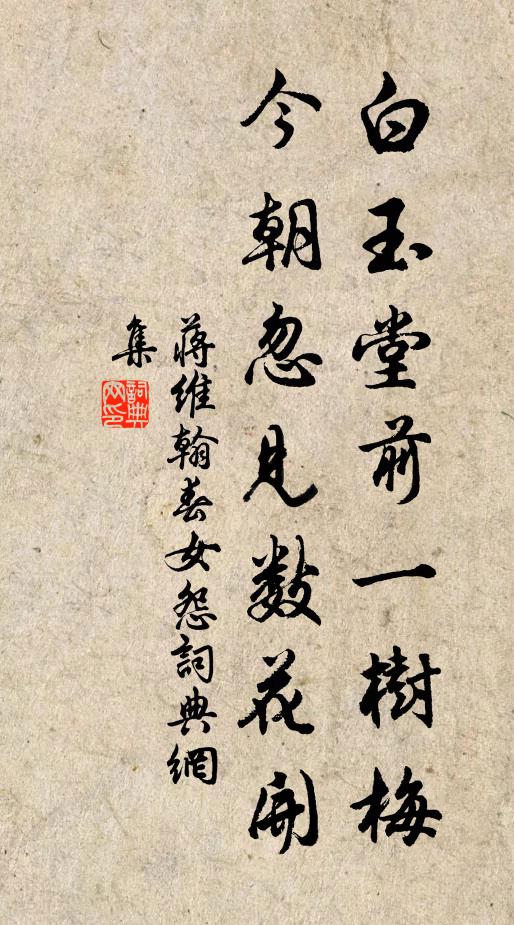 白玉堂前一樹梅
今朝忽見数花開
蔣維翰春女怨詞典網
集
詞典
网印